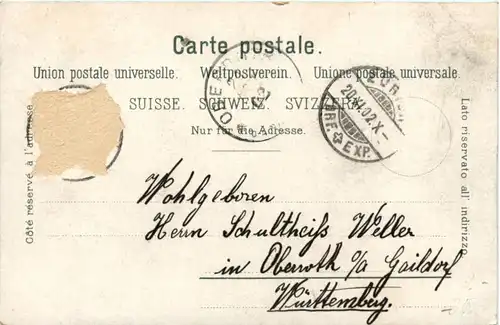 Carte postale.
Union postale universelle. Weltpostverein. Unione postale universale.
SUISSE. SCHWEIZ. SVIZZERA.
Nur für die Adresse.
Côté réservé à l'adresse.
Lato riservato all' indirizzo.
20.XI.02.X-
BRF. EXP.
Wohlgeboren
Herrn Schultheiß Weller
in Oberroth o/a Gaildorf
Württemberg.